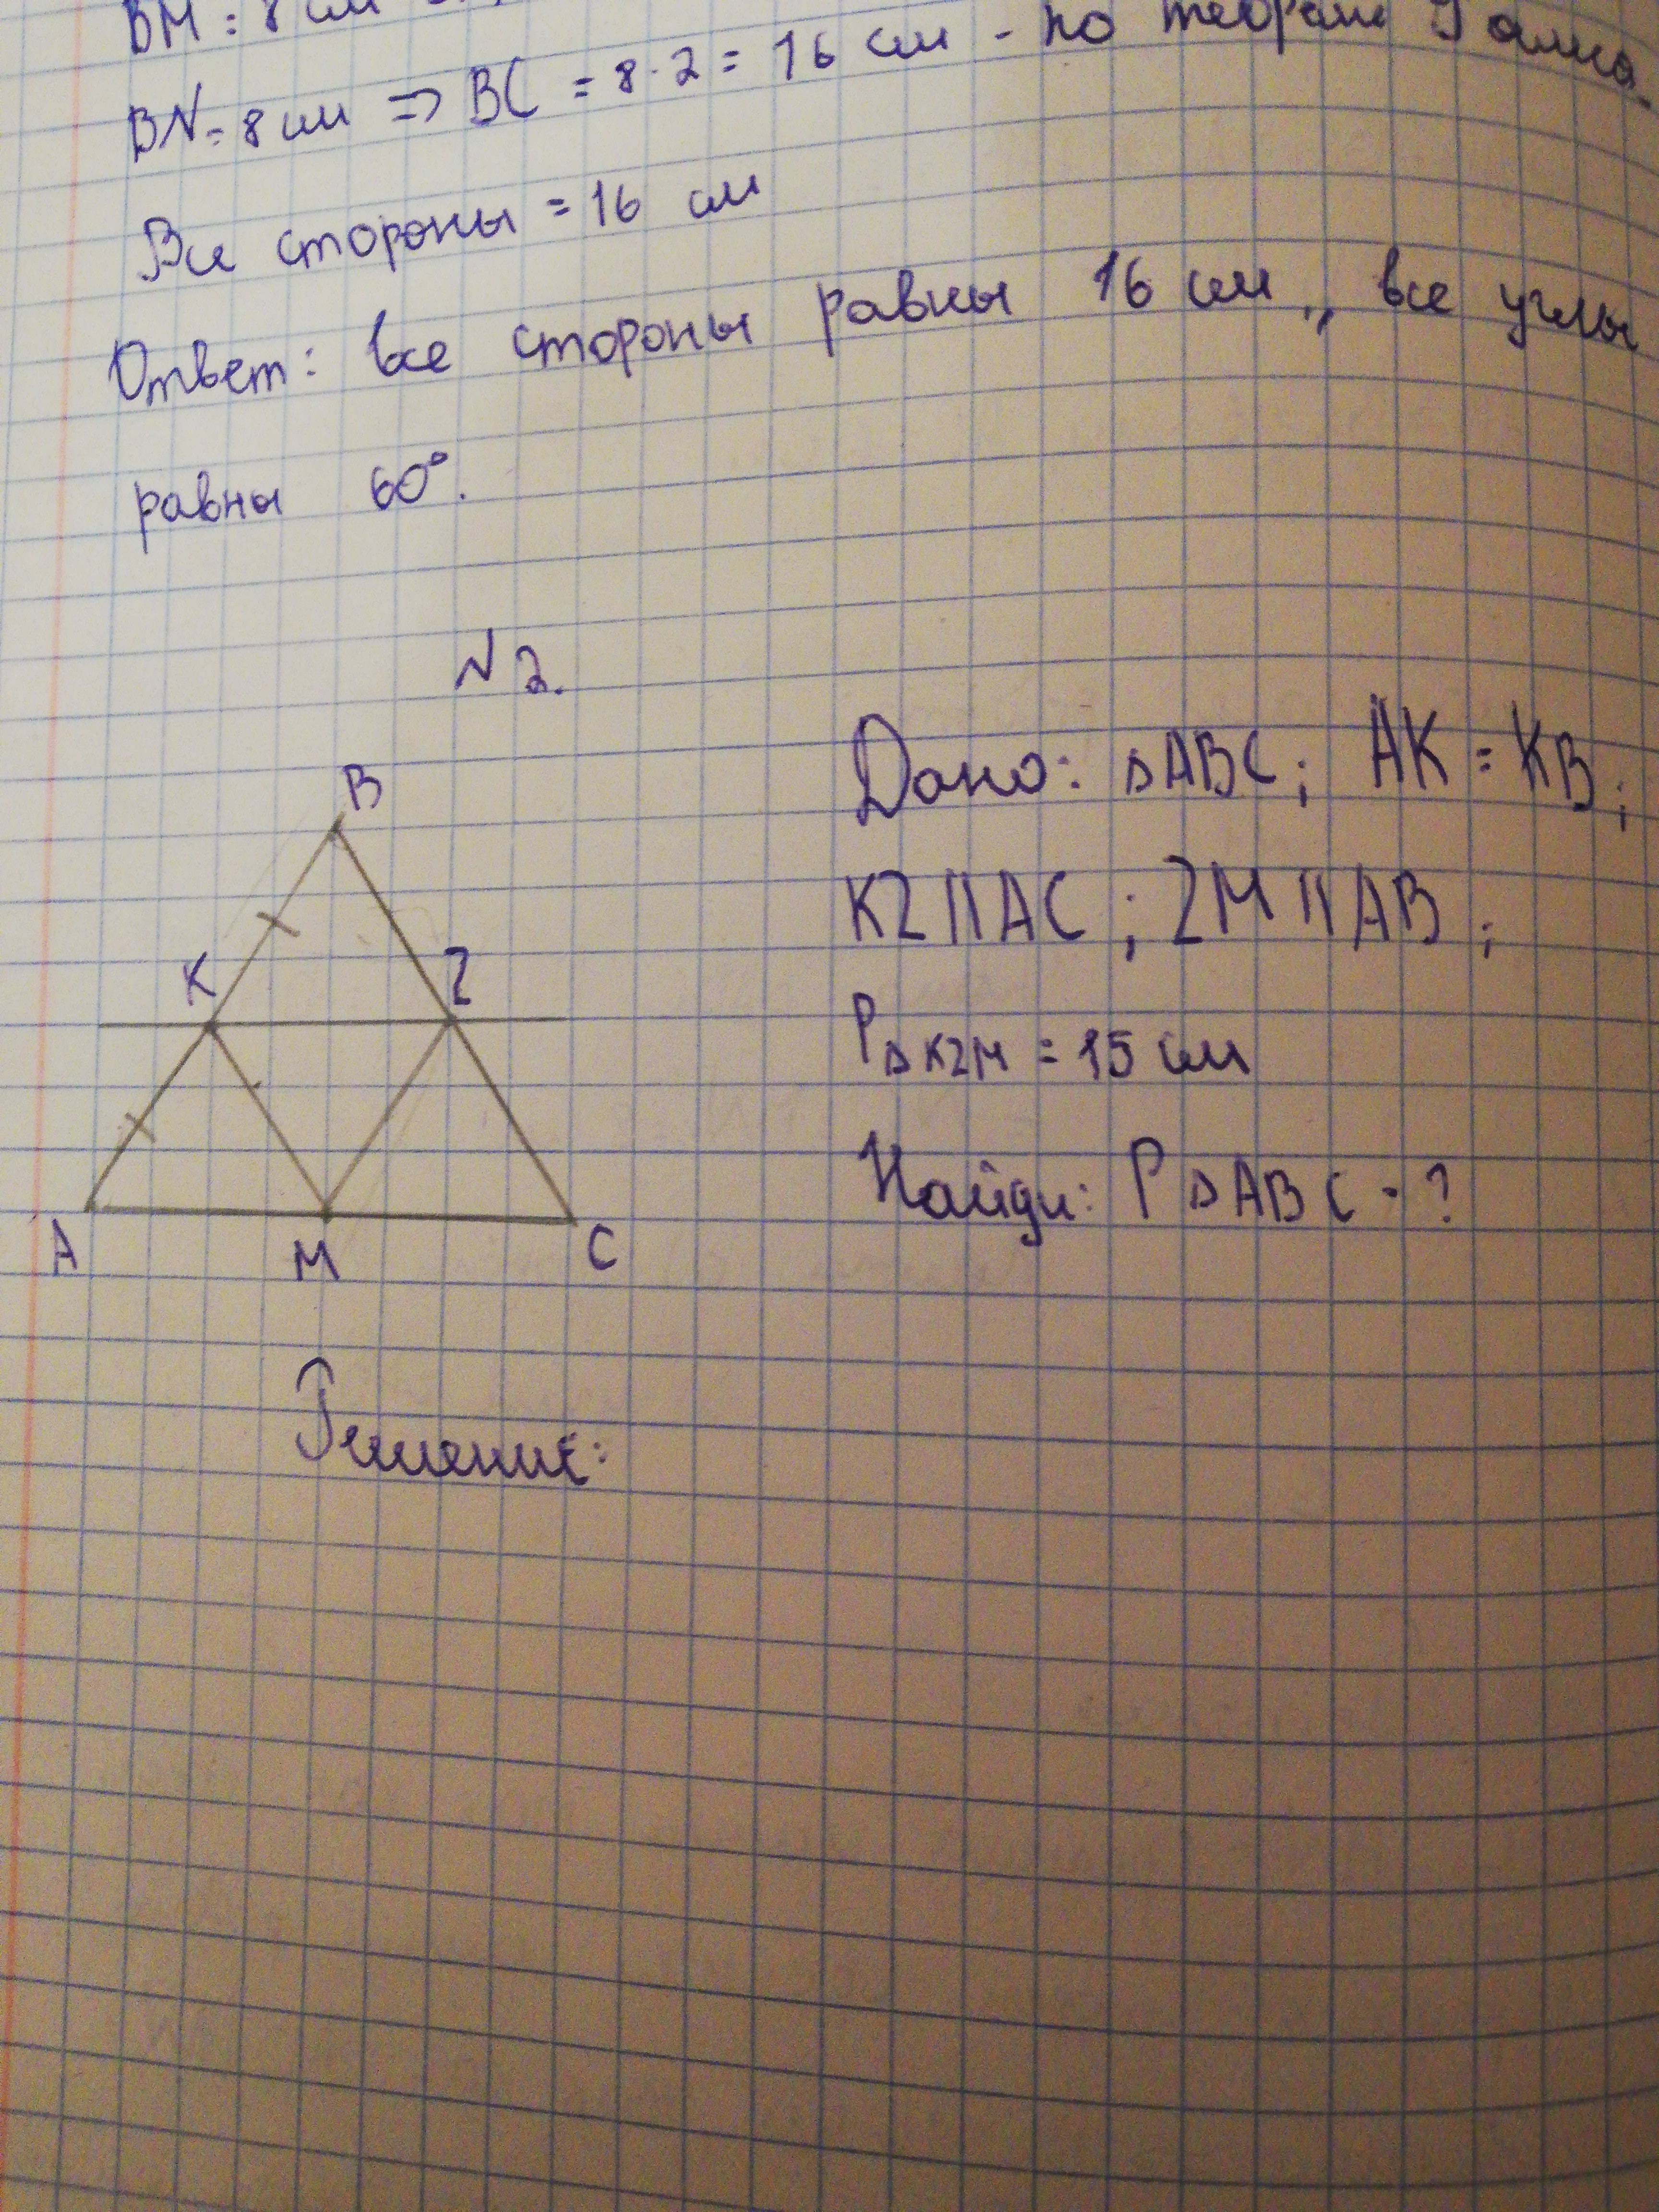 BM = 8 см
BN = 8 см => BC = 8 · 2 = 16 см - по теореме Фалеса.
Все стороны = 16 см
Ответ: все стороны равны 16 см, все углы
равны 60°.
N 2.
B
K
Z
A
M
C
Дано: △ABC; AK = KB;
KZ || AC; ZM || AB;
P△KZM = 15 см
Найди: P△ABC - ?
Решение: